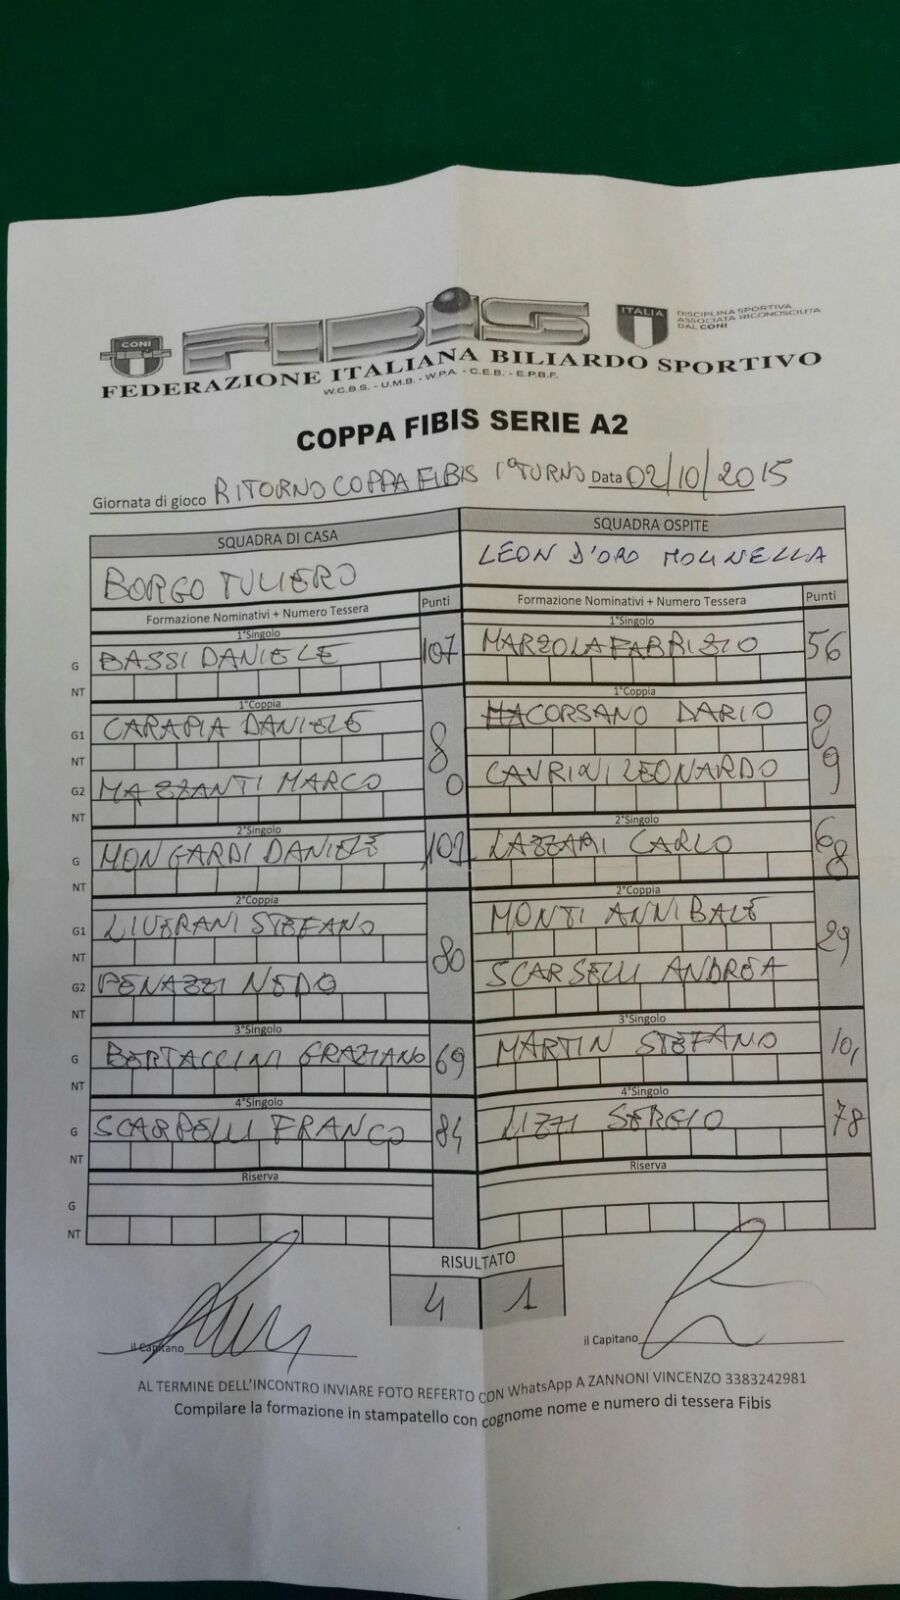 CONI
FIBIS
ITALIA
DISCIPLINA SPORTIVA
ASSOCIATA RICONOSCIUTA
DAL CONI
FEDERAZIONE ITALIANA BILIARDO SPORTIVO
W.C.B.S. - U.M.B. - W.P.A. - C.E.B. - E.P.B.F.
COPPA FIBIS SERIE A2
Giornata di gioco RITORNO COPPA FIBIS 1° TURNO Data 02/10/2015
SQUADRA DI CASA SQUADRA OSPITE
BORGO TULIERO LEON D'ORO MOLINELLA
Formazione Nominativi + Numero Tessera Punti Formazione Nominativi + Numero Tessera Punti
1°Singolo 1°Singolo
G BASSI DANIELE 107 MARZOLA FABRIZIO 56
NT
1°Coppia 1°Coppia
G1 CARAPIA DANIELE 80 CORSANO DARIO 29
NT
G2 MAZZANTI MARCO CAVRINI LEONARDO
NT
2°Singolo 2°Singolo
G MONGARDI DANIELE LAZZARI CARLO 68
NT
2°Coppia 2°Coppia
G1 LIVERANI STEFANO 80 MONTI ANNIBALE 29
NT
G2 PENAZZI NEDO SCARSELLI ANDREA
NT
3°Singolo 3°Singolo
G BERTACCINI GRAZIANO 69 MARTIN STEFANO
NT
4°Singolo 4°Singolo
G SCARPELLI FRANCO 84 LIZZI SERGIO 78
NT
Riserva Riserva
G
NT
RISULTATO
4 1
il Capitano il Capitano
AL TERMINE DELL'INCONTRO INVIARE FOTO REFERTO CON WhatsApp A ZANNONI VINCENZO 3383242981
Compilare la formazione in stampatello con cognome nome e numero di tessera Fibis